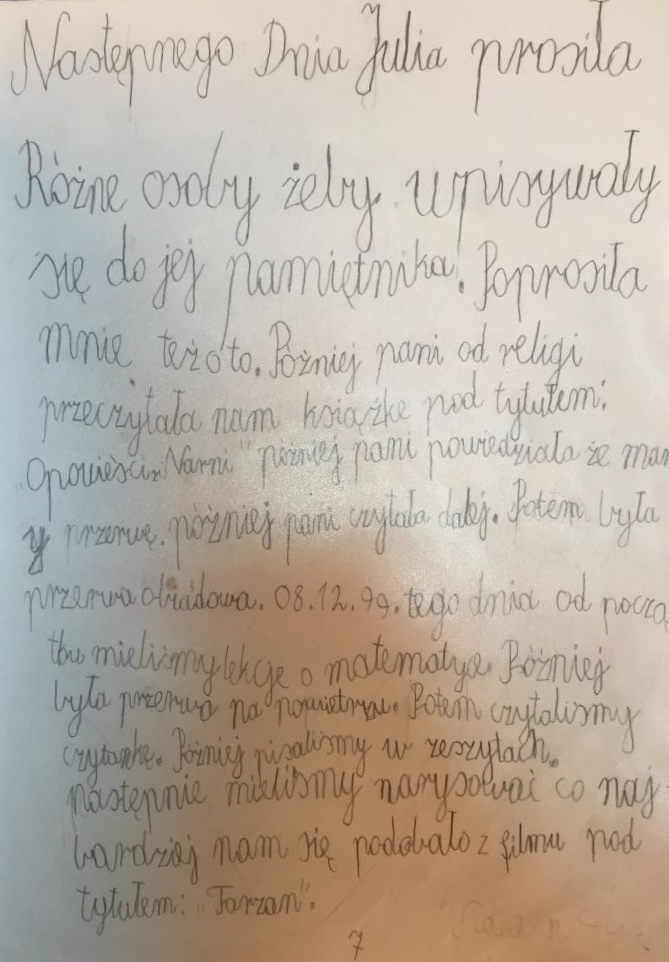 Następnego Dnia Julia prosiła
Różne osoby żeby wpisywały
się do jej pamiętnika. Poprosiła
mnie też o to. Pożniej pani od religi
przeczytała nam książke pod tytułem:
"Opowieści z Narni" póżniej pani powiedziała że mam
y przerwę. póżniej pani czytała dalej. Potem była
przerwa obiadowa. 08.12.99. tego dnia od począ
tku mieliśmy lekcje o matematyce. Póżniej
była przerwa na powietrzu. Potem czytaliśmy
czytankę. Póżniej pisaliśmy w zeszytach.
następnie mieliśmy narysować co naj
bardziej nam się podobało z filmu pod
tytułem: "Tarzan".
7